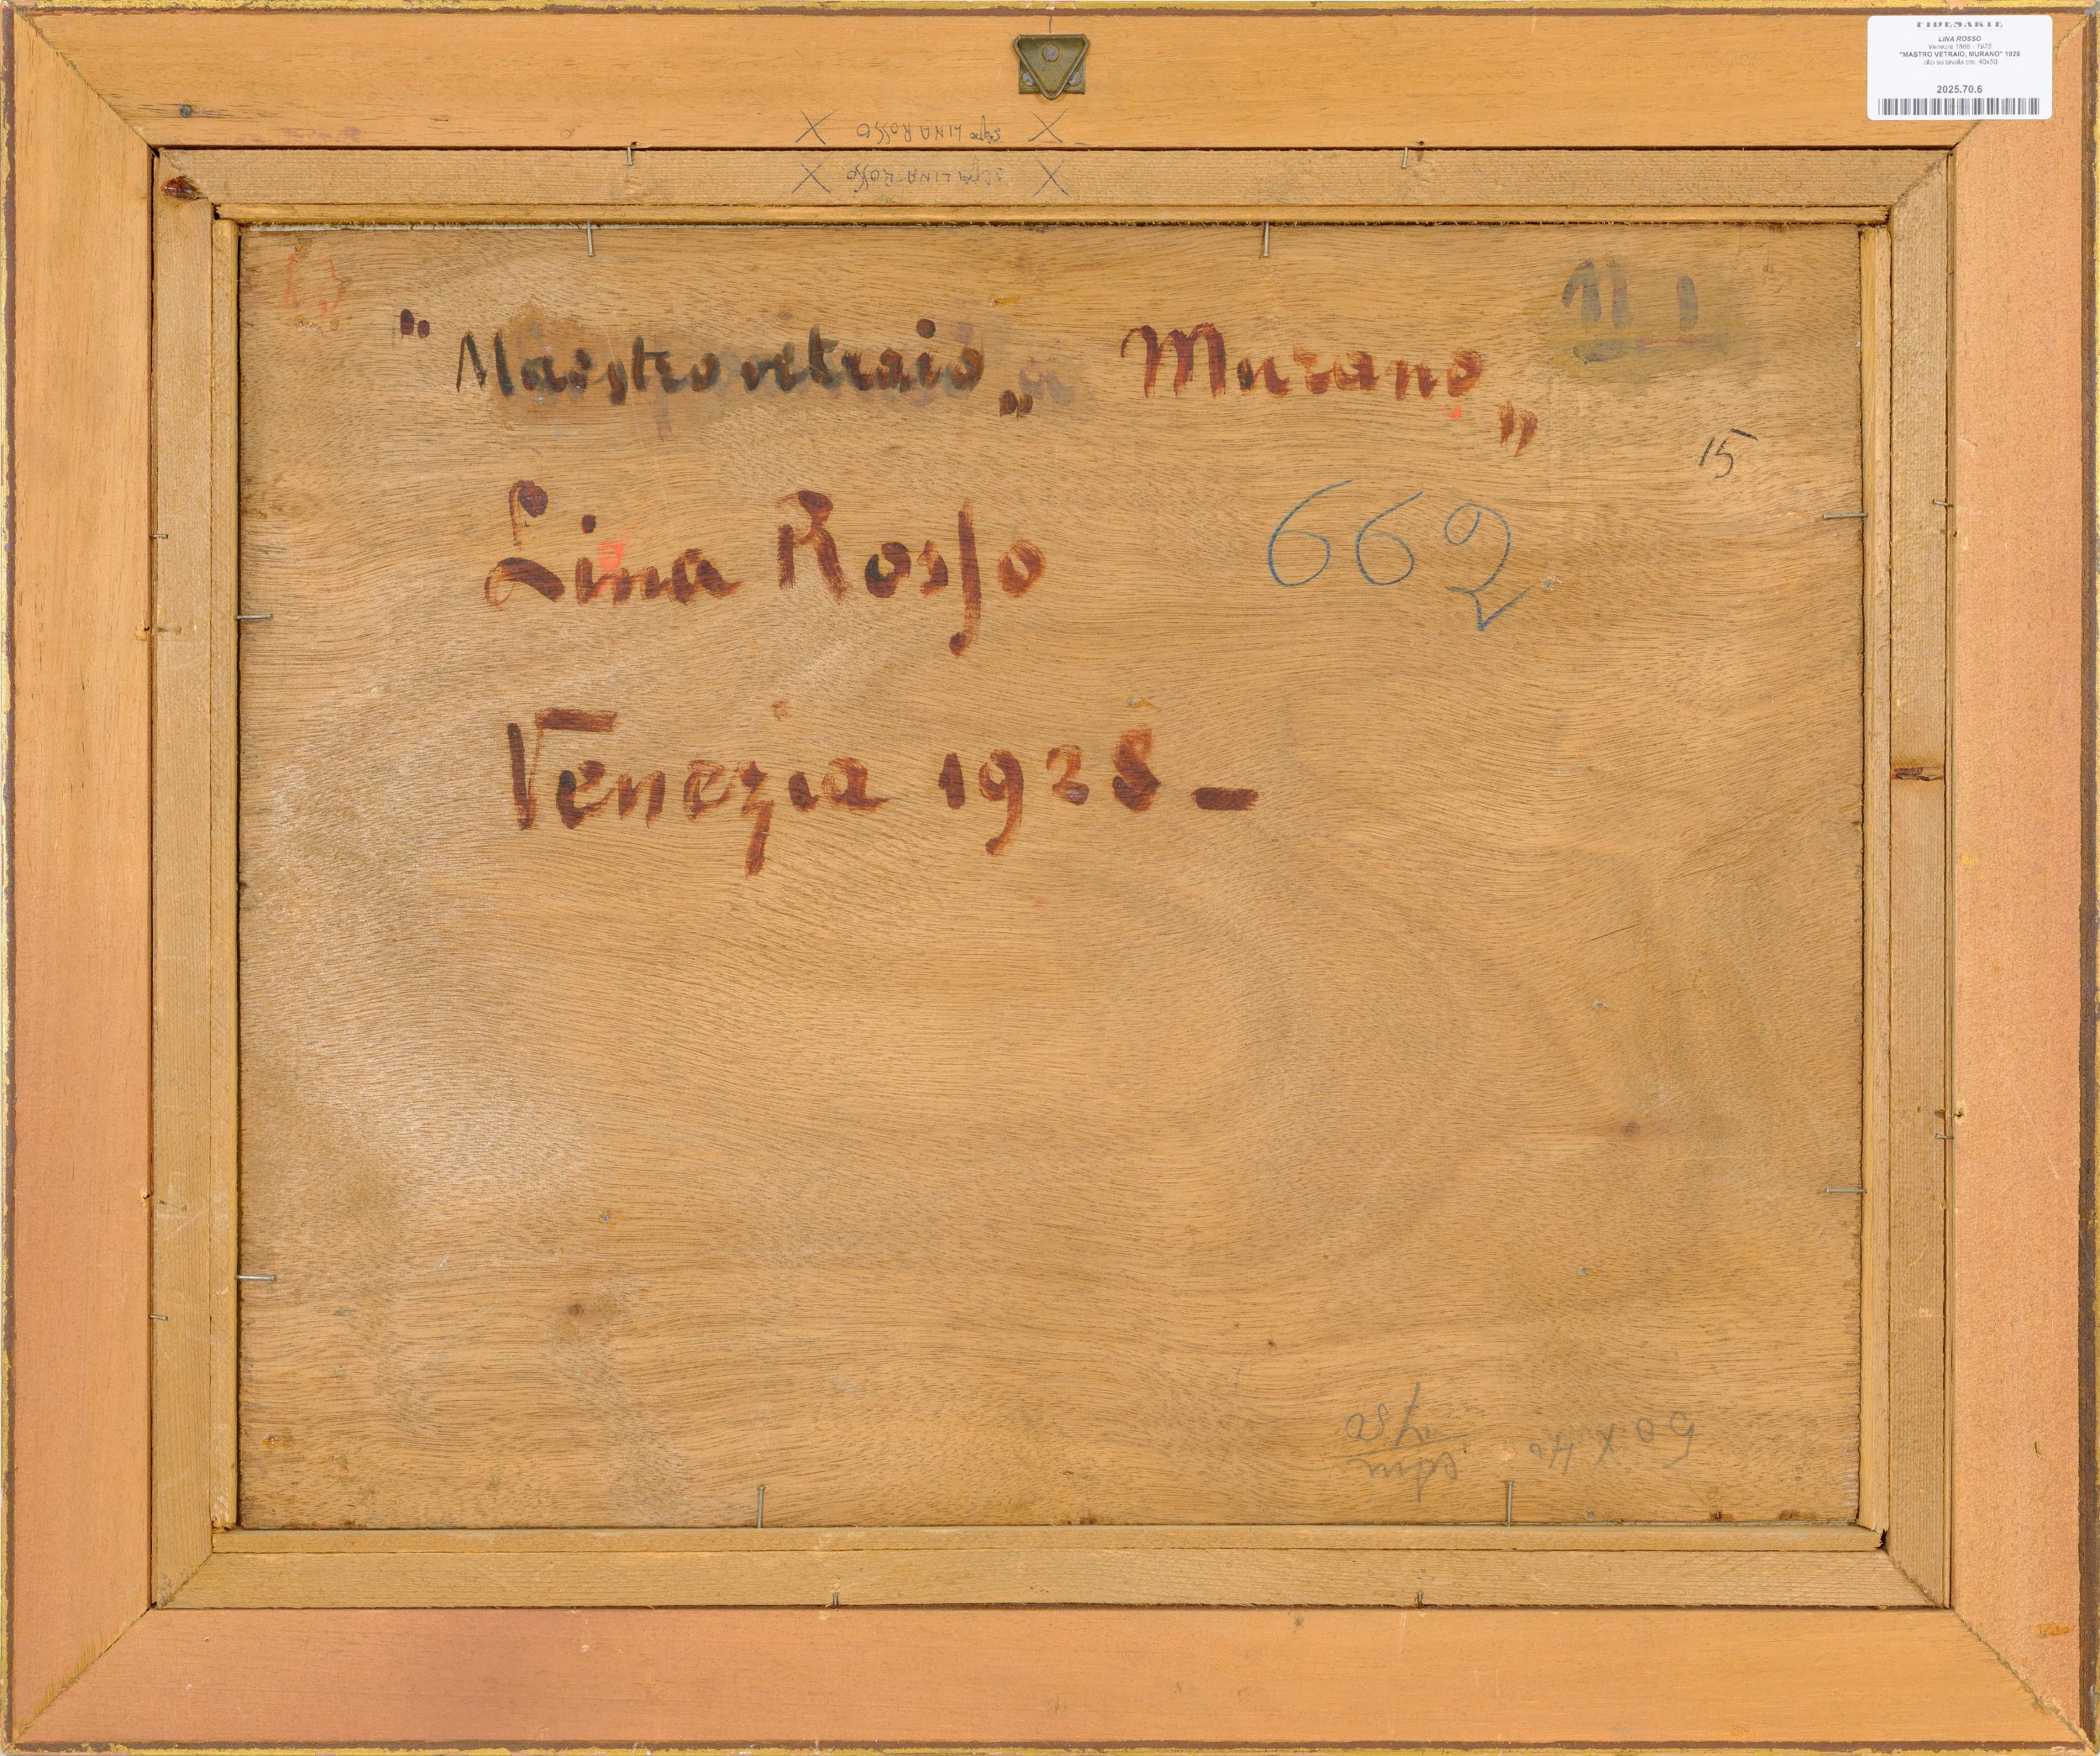 FIDESARTE
LINA ROSSO
Venezia 1888 - 1975
"MASTRO VETRAIO, MURANO" 1928
olio su tavola cm. 40x50
2025.70.6
X LINA ROSSO X
X LINA ROSSO X
N 1
" Maestro vetraio „ Murano „
15
Lina Rosso 662
Venezia 1928 -
50 x 40